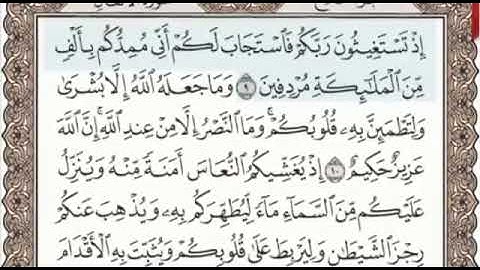 إِذْ تَسْتَغِيثُونَ رَبَّكُمْ فَاسْتَجَابَ لَكُمْ أَنِّي مُمِدُّكُم بِأَلْفٍ
مِّنَ الْمَلَائِكَةِ مُرْدِفِينَ ٩ وَمَا جَعَلَهُ اللَّهُ إِلَّا بُشْرَىٰ
وَلِتَطْمَئِنَّ بِهِ قُلُوبُكُمْ ۚ وَمَا النَّصْرُ إِلَّا مِنْ عِندِ اللَّهِ ۚ إِنَّ اللَّهَ
عَزِيزٌ حَكِيمٌ ١٠ إِذْ يُغَشِّيكُمُ النُّعَاسَ أَمَنَةً مِّنْهُ وَيُنَزِّلُ
عَلَيْكُم مِّنَ السَّمَاءِ مَاءً لِّيُطَهِّرَكُم بِهِ وَيُذْهِبَ عَنكُمْ
رِجْزَ الشَّيْطَانِ وَلِيَرْبِطَ عَلَىٰ قُلُوبِكُمْ وَيُثَبِّتَ بِهِ الْأَقْدَامَ